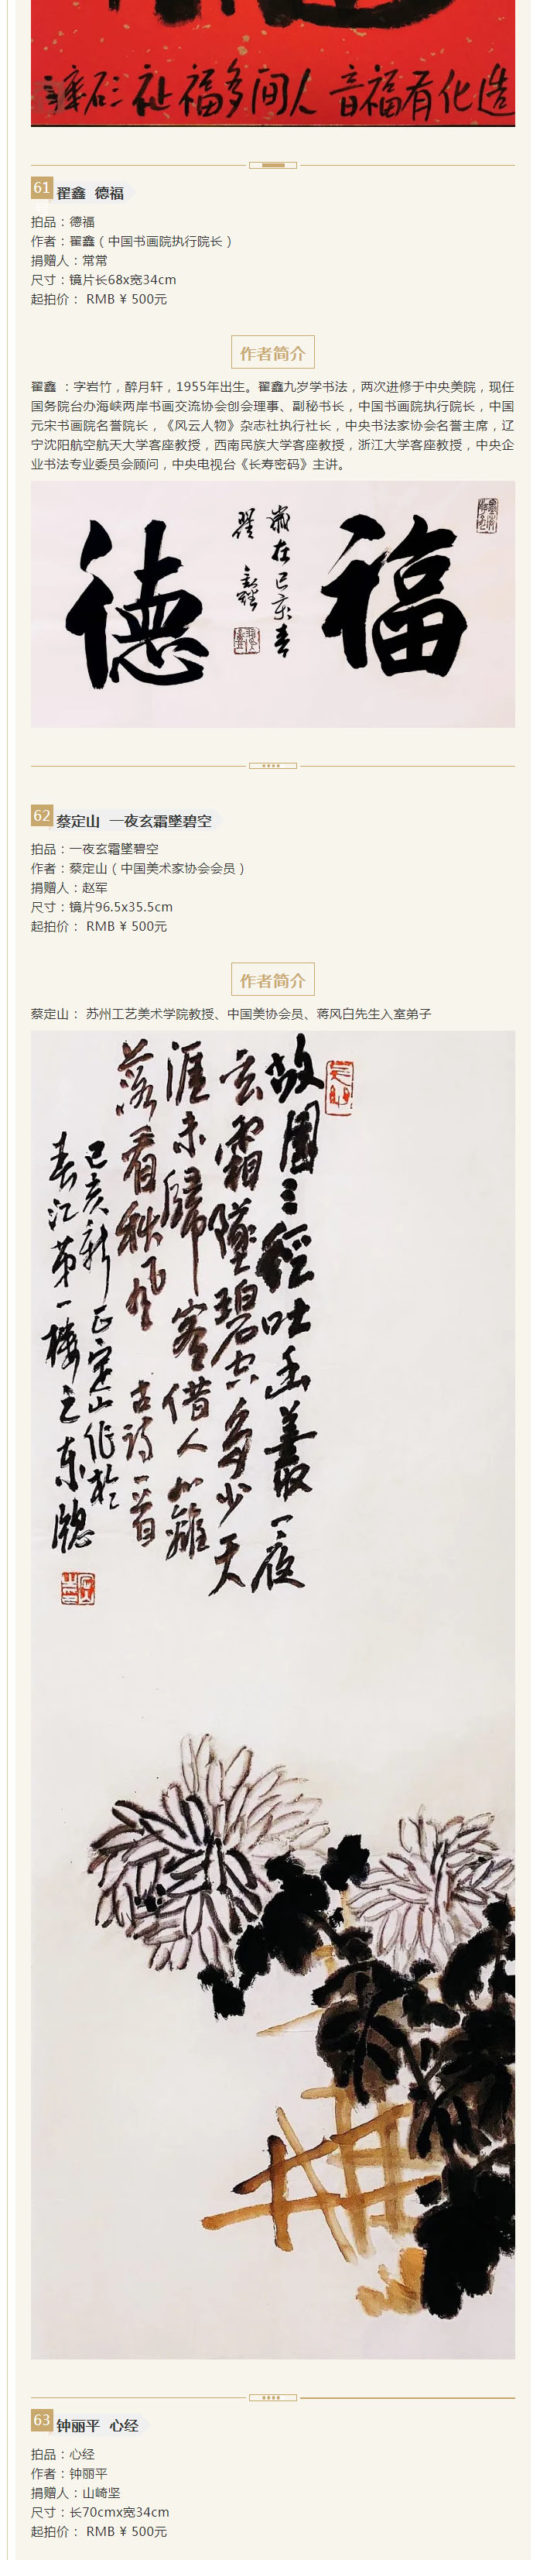 造化看福音 人间多福祉
61
翟鑫 德福
拍品：德福
作者：翟鑫（中国书画院执行院长）
捐赠人：常常
尺寸：镜片长68x宽34cm
起拍价： RMB ¥ 500元
作者简介
翟鑫 ：字岩竹，醉月轩，1955年出生。翟鑫九岁学书法，两次进修于中央美院，现任
国务院台办海峡两岸书画交流协会创会理事、副秘书长，中国书画院执行院长，中国
元宋书画院名誉院长，《风云人物》杂志社执行社长，中央书法家协会名誉主席，辽
宁沈阳航空航天大学客座教授，西南民族大学客座教授，浙江大学客座教授，中央企
业书法专业委员会顾问，中央电视台《长寿密码》主讲。
福
歲在己亥春
翟鑫
德
62
蔡定山 一夜玄霜墜碧空
拍品：一夜玄霜墜碧空
作者：蔡定山（中国美术家协会会员）
捐赠人：赵军
尺寸：镜片96.5x35.5cm
起拍价： RMB ¥ 500元
作者简介
蔡定山： 苏州工艺美术学院教授、中国美协会员、蒋风白先生入室弟子
故園三徑吐幽叢一夜
玄霜墜碧空多少天
涯未歸客借人籬
落看秋風 古詩一首
己亥新正定山作於
春江第一樓之東牕
63
钟丽平 心经
拍品：心经
作者：钟丽平
捐赠人：山崎坚
尺寸：长70cmx宽34cm
起拍价： RMB ¥ 500元